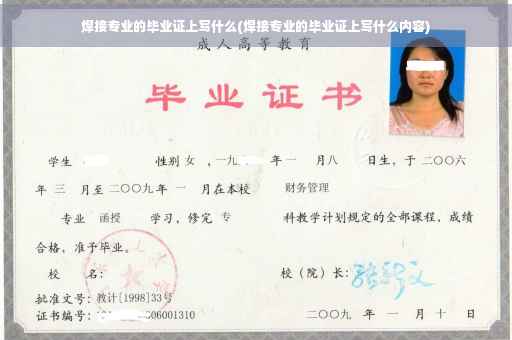 焊接专业的毕业证上写什么(焊接专业的毕业证上写什么内容)
成人高等教育
毕业证书
学生 性别 女 ,一九 年一 月八 日生,于二〇〇六
年 三 月至二〇〇九年 一 月在本校 财务管理
专业 函授 学习,修完 专 科教学计划规定的全部课程,成绩
合格,准予毕业。
校 名: 校(院)长:
批准文号:教计[1998]33号
证书编号: 06001310 二〇〇九 年 一 月 十 日